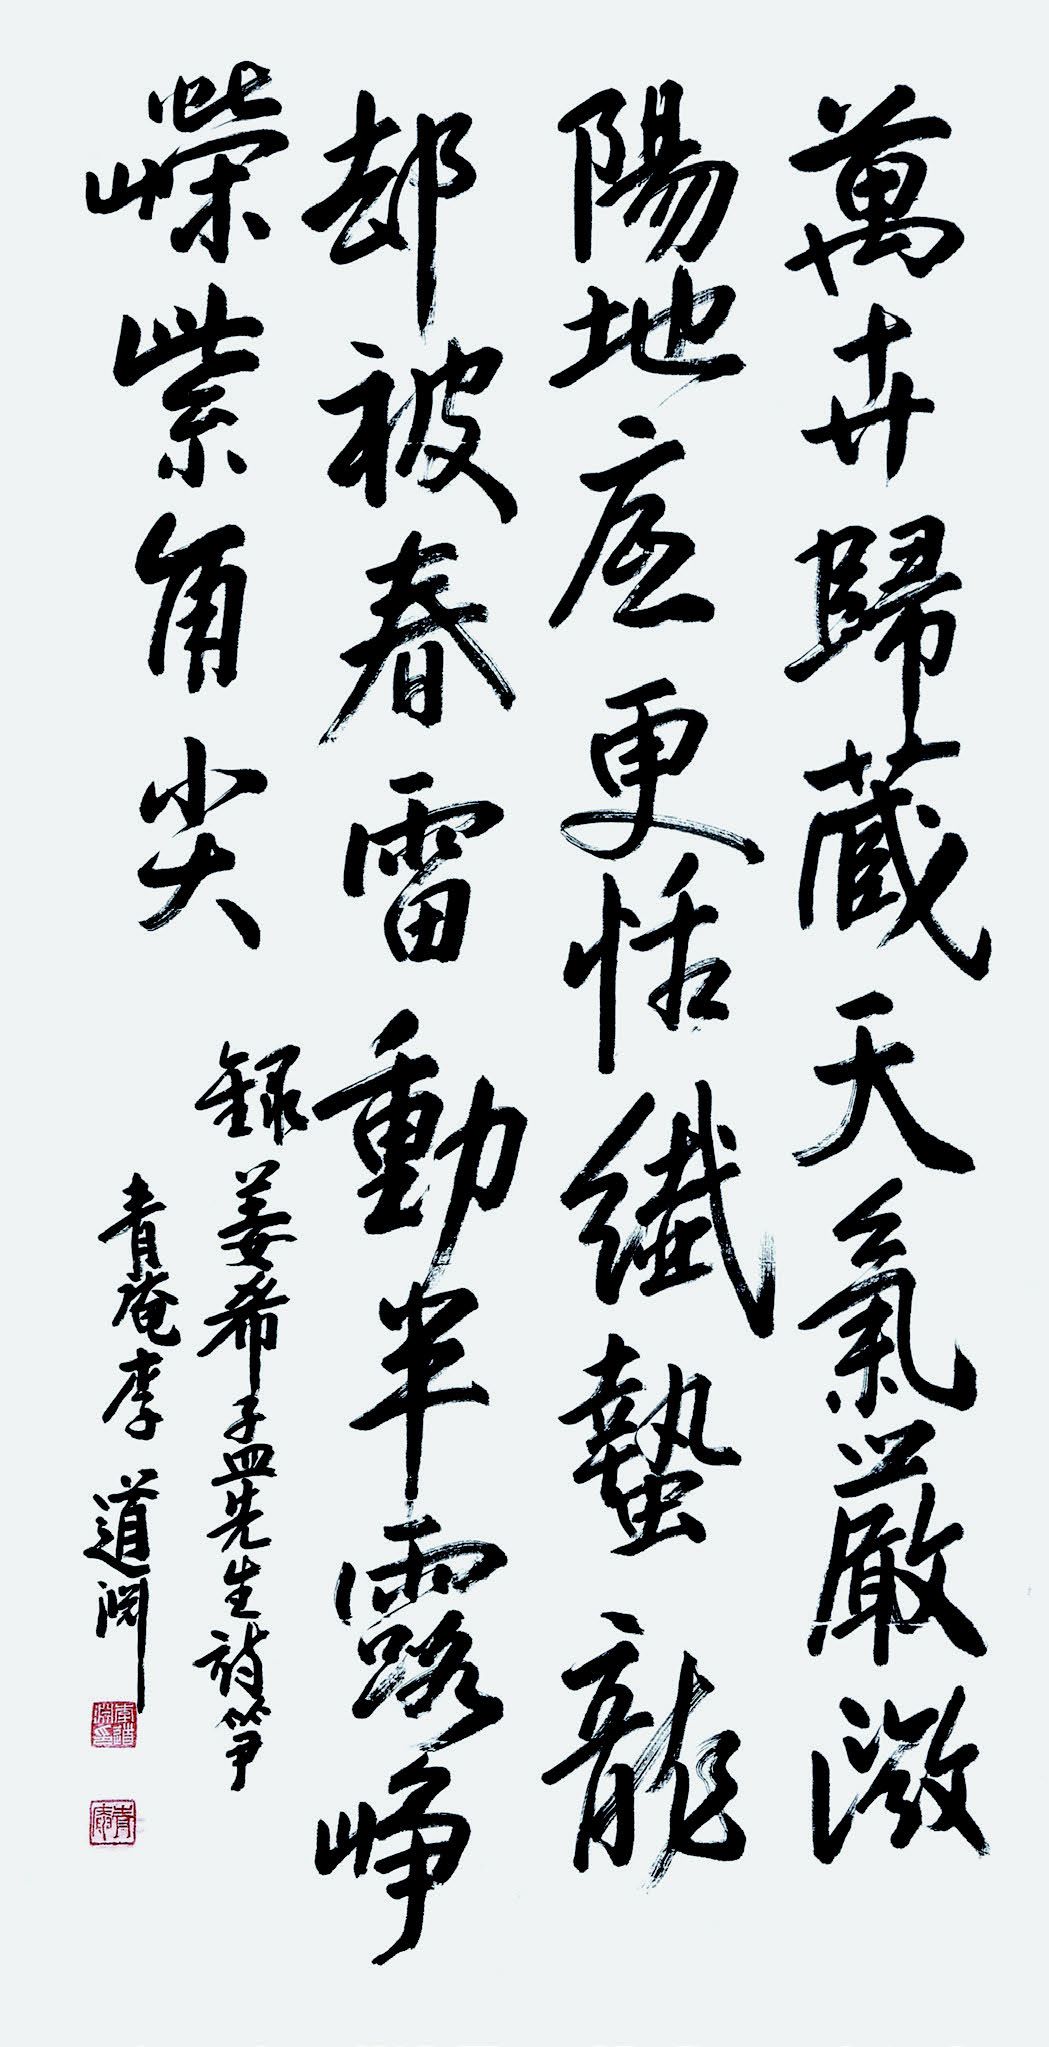 萬卉歸藏天氣嚴微
陽地底更恬纖蟄龍
却被春雷動半露崢
嶸紫角尖
錄姜希孟先生詩筍
青庵李道淵